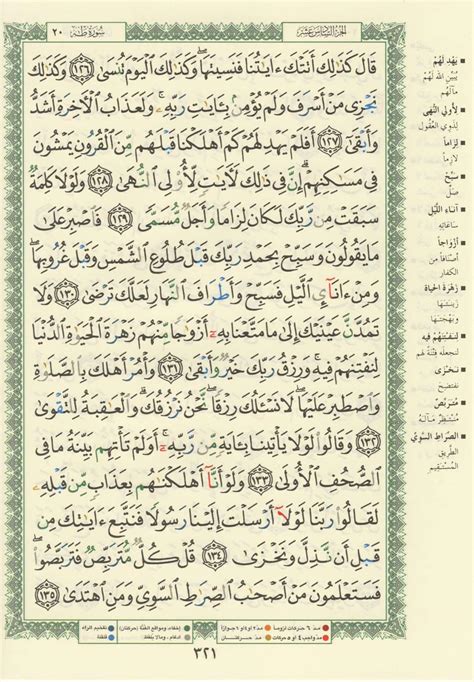 الجزء السادس عشر
سورة طه ٢٠
قَالَ كَذَٰلِكَ أَتَتْكَ ءَايَٰتُنَا فَنَسِيتَهَا ۖ وَكَذَٰلِكَ ٱلْيَوْمَ تُنسَىٰ ﴿١٢٦﴾ وَكَذَٰلِكَ
نَجْزِى مَنْ أَسْرَفَ وَلَمْ يُؤْمِنۢ بِـَٔايَٰتِ رَبِّهِۦ ۚ وَلَعَذَابُ ٱلْءَاخِرَةِ أَشَدُّ
وَأَبْقَىٰٓ ﴿١٢٧﴾ أَفَلَمْ يَهْدِ لَهُمْ كَمْ أَهْلَكْنَا قَبْلَهُم مِّنَ ٱلْقُرُونِ يَمْشُونَ
فِى مَسَٰكِنِهِمْ ۗ إِنَّ فِى ذَٰلِكَ لَءَايَٰتٍ لِّأُو۟لِى ٱلنُّهَىٰ ﴿١٢٨﴾ وَلَوْلَا كَلِمَةٌ
سَبَقَتْ مِن رَّبِّكَ لَكَانَ لِزَامًا وَأَجَلٌ مُّسَمًّى ﴿١٢٩﴾ فَٱصْبِرْ عَلَىٰ
مَا يَقُولُونَ وَسَبِّحْ بِحَمْدِ رَبِّكَ قَبْلَ طُلُوعِ ٱلشَّمْسِ وَقَبْلَ غُرُوبِهَا ۖ
وَمِنْ ءَانَآئِ ٱلَّيْلِ فَسَبِّحْ وَأَطْرَافَ ٱلنَّهَارِ لَعَلَّكَ تَرْضَىٰ ﴿١٣٠﴾ وَلَا
تَمُدَّنَّ عَيْنَيْكَ إِلَىٰ مَا مَتَّعْنَا بِهِۦٓ أَزْوَٰجًا مِّنْهُمْ زَهْرَةَ ٱلْحَيَوٰةِ ٱلدُّنْيَا
لِنَفْتِنَهُمْ فِيهِ ۚ وَرِزْقُ رَبِّكَ خَيْرٌ وَأَبْقَىٰ ﴿١٣١﴾ وَأْمُرْ أَهْلَكَ بِٱلصَّلَوٰةِ
وَٱصْطَبِرْ عَلَيْهَا ۖ لَا نَسْـَٔلُكَ رِزْقًا ۖ نَّحْنُ نَرْزُقُكَ ۗ وَٱلْعَٰقِبَةُ لِلتَّقْوَىٰ
﴿١٣٢﴾ وَقَالُوا۟ لَوْلَا يَأْتِينَا بِـَٔايَةٍ مِّن رَّبِّهِۦٓ ۚ أَوَلَمْ تَأْتِهِم بَيِّنَةُ مَا فِى
ٱلصُّحُفِ ٱلْأُولَىٰ ﴿١٣٣﴾ وَلَوْ أَنَّآ أَهْلَكْنَٰهُم بِعَذَابٍ مِّن قَبْلِهِۦ
لَقَالُوا۟ رَبَّنَا لَوْلَآ أَرْسَلْتَ إِلَيْنَا رَسُولًا فَنَتَّبِعَ ءَايَٰتِكَ مِن
قَبْلِ أَن نَّذِلَّ وَنَخْزَىٰ ﴿١٣٤﴾ قُلْ كُلٌّ مُّتَرَبِّصٌ فَتَرَبَّصُوا۟ ۖ
فَسَتَعْلَمُونَ مَنْ أَصْحَٰبُ ٱلصِّرَٰطِ ٱلسَّوِىِّ وَمَنِ ٱهْتَدَىٰ ﴿١٣٥﴾
يَهْدِ لَهُمْ
يُبَيِّن الله لَهُمْ
مآلهُم
لأولي النُّهَى
لِذَوِي العُقُول
لِزَاماً
لازِماً
سَبِّحْ
صَلِّ
آناء اللَّيْل
ساعاتِه
أزْوَاجاً
أصنافاً من
الكفار
زَهْرَة الحياة
زينتها
وبَهْجَتها
لِنَفْتِنَهُمْ فِيهِ
لنجعله فِتْنَةً لهم
نَخْزَى
نفتضح
مُتَرَبِّصٌ
مُنْتَظِرٌ مآلَهُ
الصِّرَاطِ السَّوِيِّ
الطريق
المُسْتَقيم
مدّ ٦ حركات لزوماً
مدّ ٢ أو ٤ أو ٦ جوازاً
إخفاء، ومواقع الغنّة (حركتان)
تفخيم الراء
مدّ واجب ٤ أو ٥ حركات
مدّ حركتان
ادغام، وما لا يلفظ
قلقلة
٣٢١